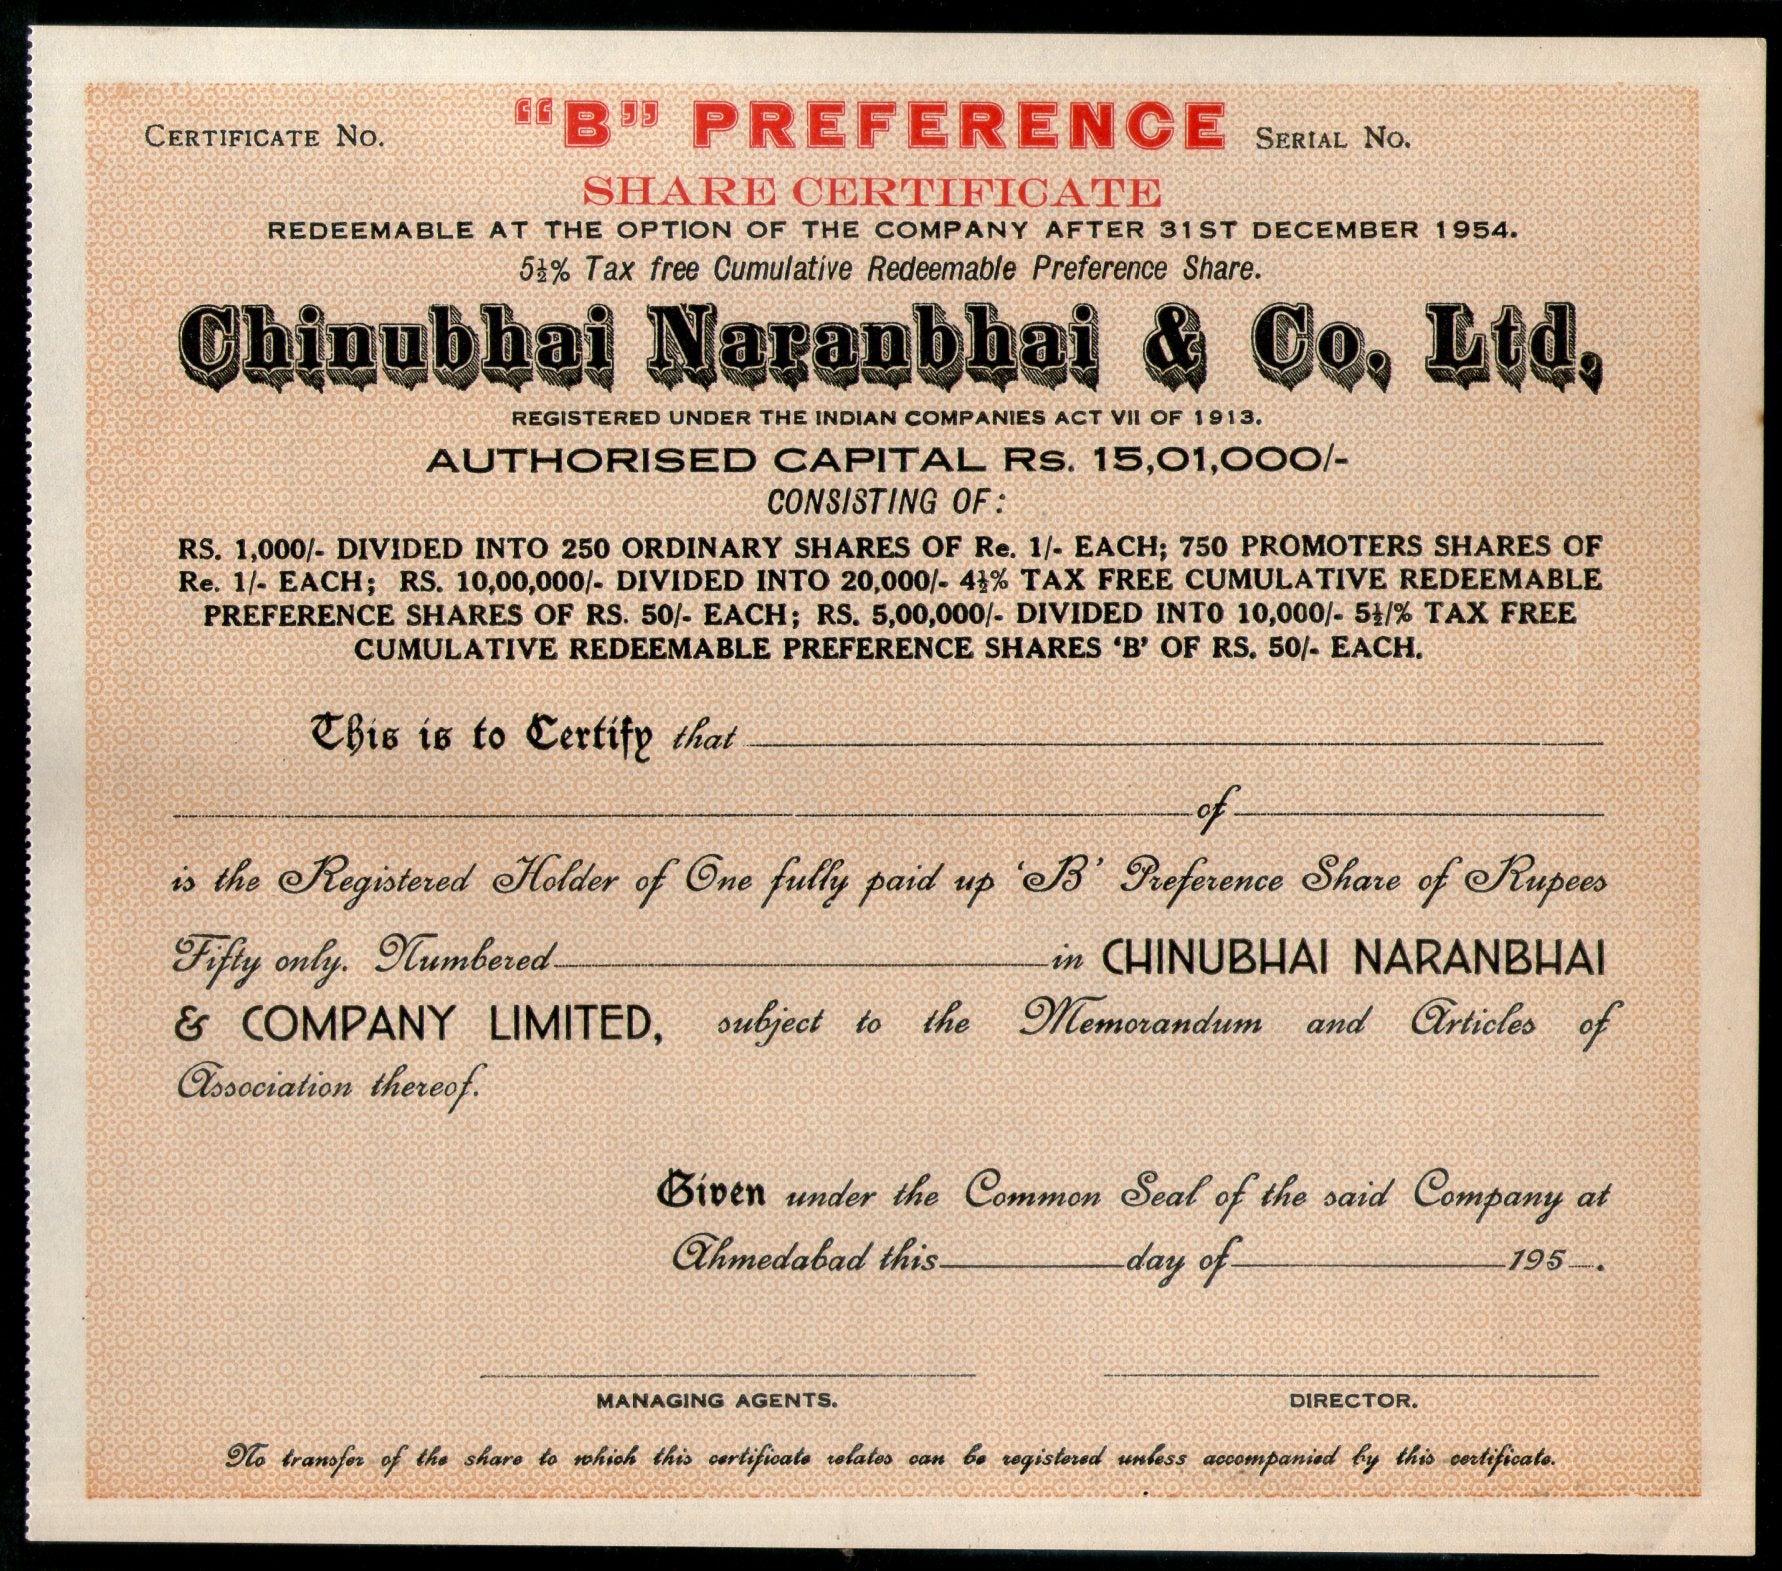 CERTIFICATE NO.
“B” PREFERENCE
SERIAL NO.
SHARE CERTIFICATE
REDEEMABLE AT THE OPTION OF THE COMPANY AFTER 31ST DECEMBER 1954.
5½% Tax free Cumulative Redeemable Preference Share.
Chinubhai Naranbhai & Co. Ltd.
REGISTERED UNDER THE INDIAN COMPANIES ACT VII OF 1913.
AUTHORISED CAPITAL Rs. 15,01,000/-
CONSISTING OF:
RS. 1,000/- DIVIDED INTO 250 ORDINARY SHARES OF Re. 1/- EACH; 750 PROMOTERS SHARES OF
Re. 1/- EACH; RS. 10,00,000/- DIVIDED INTO 20,000/- 4½% TAX FREE CUMULATIVE REDEEMABLE
PREFERENCE SHARES OF RS. 50/- EACH; RS. 5,00,000/- DIVIDED INTO 10,000/- 5½/% TAX FREE
CUMULATIVE REDEEMABLE PREFERENCE SHARES ‘B’ OF RS. 50/- EACH.
This is to Certify that
of
is the Registered Holder of One fully paid up ‘B’ Preference Share of Rupees
Fifty only. Numbered in CHINUBHAI NARANBHAI
& COMPANY LIMITED, subject to the Memorandum and Articles of
Association thereof.
Given under the Common Seal of the said Company at
Ahmedabad this day of 195 .
MANAGING AGENTS.
DIRECTOR.
No transfer of the share to which this certificate relates can be registered unless accompanied by this certificate.